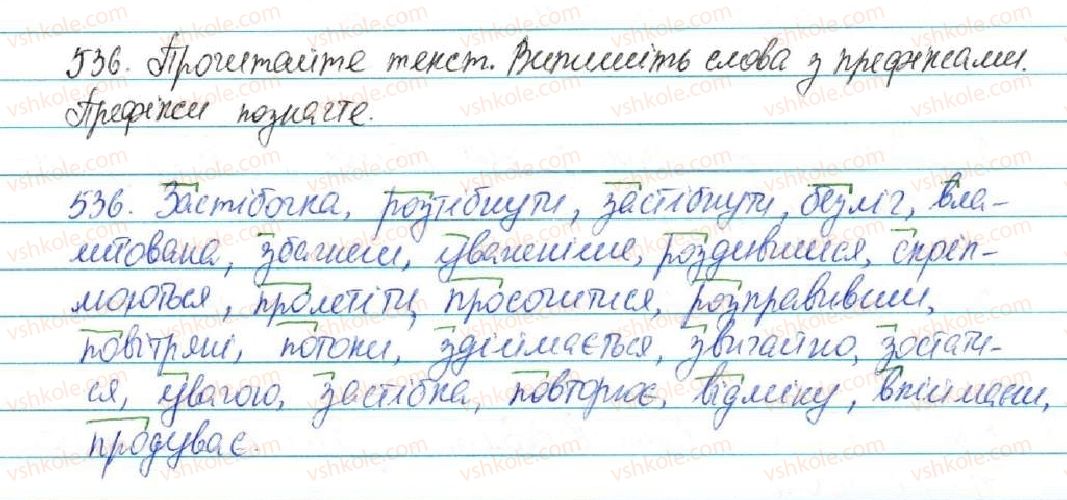 536. Прочитайте текст. Випишіть слова з префіксами.
Префікси позначте.
536. Застібочка, розтібнути, застібнути, безліч, вла-
штована, збагнеш, уважніше, роздившися, скріп-
люються, пролетіти, просочитися, розправивши,
повітряні, потоки, здіймається, звичайно, зостати-
ся, увагою, застібка, повторює, відміну, впіймаєш,
продуває.